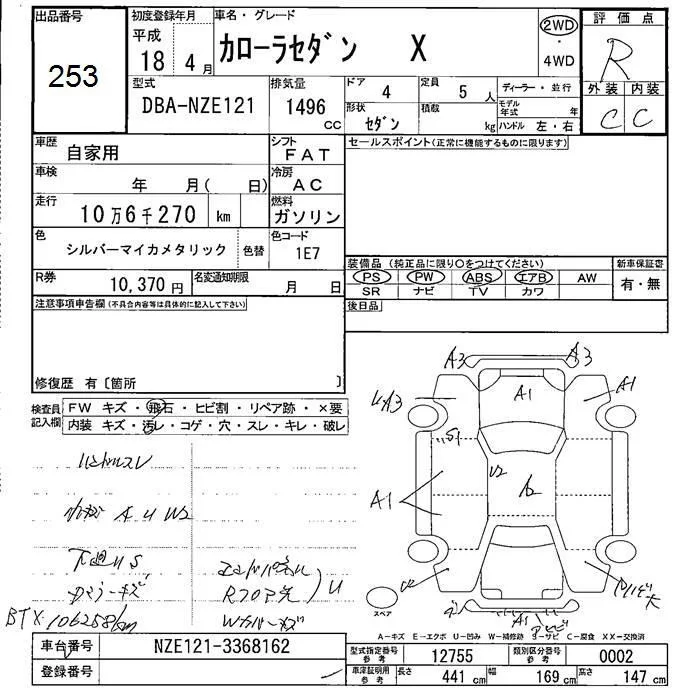 出品番号
253
初度登録年月
平成
18 4 月
車名・グレード
カローラセダン X
2WD
・
4WD
評価点
R
外装 内装
C C
型式
DBA-NZE121
排気量
1496
CC
ドア
4
定員
5 人
ディーラー・並行
形状
セダン
積載
kg
モデル年式 年
ハンドル 左・右
車歴
自家用
シフト
FAT
セールスポイント(正常に機能するものに限ります)
車検
年 月( 日)
冷房
AC
走行
10万6千270 km
燃料
ガソリン
色
シルバーマイカメタリック
色替
色コード
1E7
装備品 (純正品に限り○をつけてください)
新車保証書
PS PW ABS エアB AW
SR ナビ TV カワ
有・無
R券
10,370 円
名変通知期限
月 日
後日品
注意事項申告欄(不具合内容等は具体的に記入して下さい)
修復歴 有〔箇所 〕
検査員
記入欄
FW キズ・飛石・ヒビ割・リペア跡・×要
内装 キズ・汚レ・コゲ・穴・スレ・キレ・破レ
A3 A3
A1 A1
A3
S1
U2
A2
A1
ハンドルスレ
A U W2
下廻りS
U
BTX 106258km
スペア
A1
A−キズ E−エクボ U−凹み W−補修跡 S−サビ C−腐食 XX−交換済
車台番号
NZE121-3368162
登録番号
型式指定番号
参考
12755
類別区分番号
参考
0002
車庫証明用
参考
長さ 441 cm 幅 169 cm 高さ 147 cm